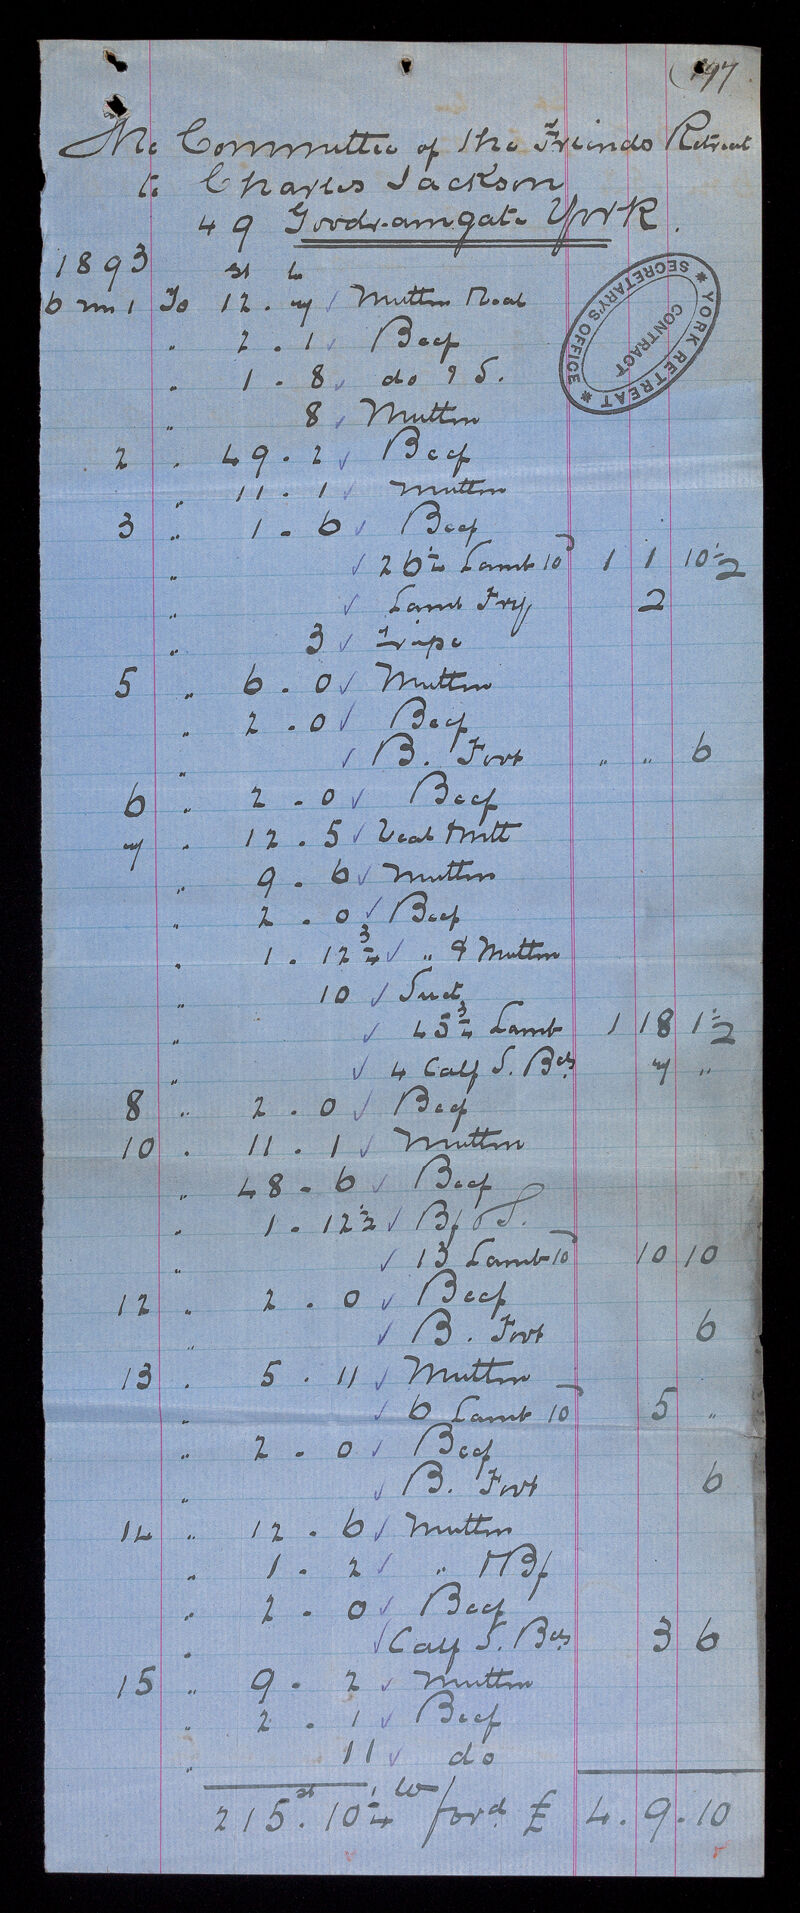 197
The Committee of the Friends Retreat
to Charles Jackson
49 Goodramgate York.
YORK RETREAT * SECRETARY'S OFFICE * CONTRACT
1893 st lb
6 mo 1 To 12 . 7 ✓ Mutton Veal
" 2 . 1 ✓ Beef
" 1 . 8 ✓ do & S.
" 8 ✓ Mutton
2 " 49 . 2 ✓ Beef
" 11 . 1 ✓ Mutton
3 " 1 . 6 ✓ Beef
" ✓ 26¼ Lamb 10d 1 1 10½
" ✓ Lamb Fry 2
" 3 ✓ Tripe
5 " 6 . 0 ✓ Mutton
" 2 . 0 ✓ Beef
" ✓ B. Foot " " 6
6 " 2 . 0 ✓ Beef
7 " 12 . 5 ✓ Veal & Mutt
" 9 . 6 ✓ Mutton
" 2 . 0 ✓ Beef
" 1 . 12¾ ✓ " & Mutton
" 10 ✓ Suet
" ✓ 45¾ Lamb 1 18 1½
" ✓ 4 Calf S. Bds 7 "
8 " 2 . 0 ✓ Beef
10 " 11 . 1 ✓ Mutton
" 48 . 6 ✓ Beef
" 1 . 12½ ✓ Bf & S.
" ✓ 13 Lamb 10d 10 10
12 " 2 . 0 ✓ Beef
" ✓ B. Foot 6
13 " 5 . 11 ✓ Mutton
" ✓ 6 Lamb 10d 5 "
" 2 . 0 ✓ Beef
" ✓ B. Foot 6
14 " 12 . 6 ✓ Mutton
" 1 . 2 ✓ " & Bf
" 2 . 0 ✓ Beef
" ✓ Calf S. Bds 3 6
15 " 9 . 2 ✓ Mutton
" 2 . 1 ✓ Beef
" 11 ✓ do
215st . 10¼ lb ford £ 4 . 9 . 10